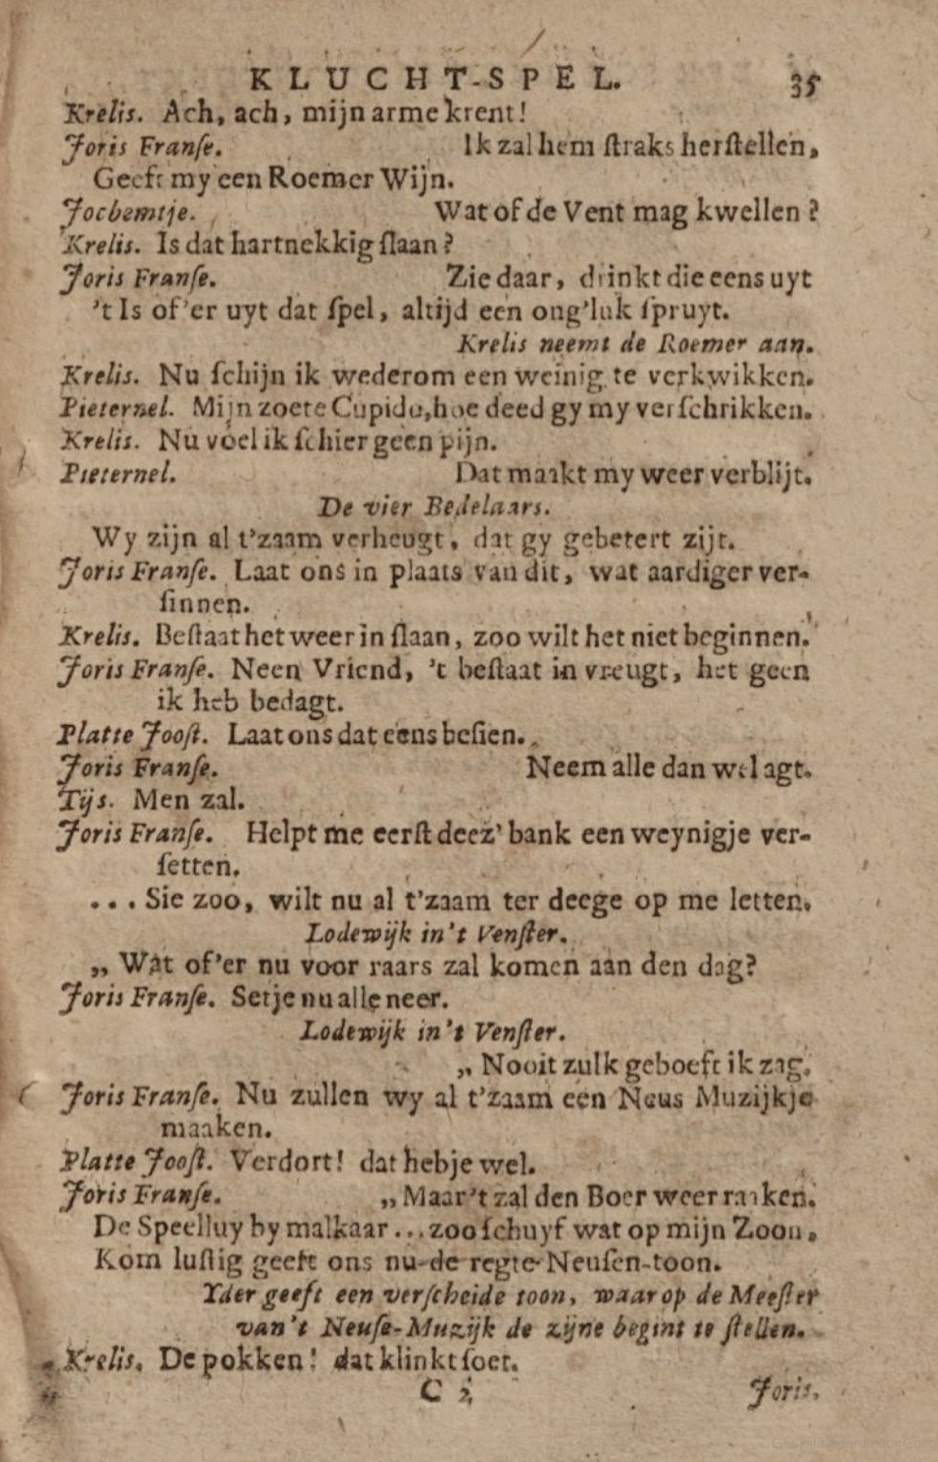 KLUCHT-SPEL. 35
Krelis. Ach, ach, mijn arme krent!
Joris Franſe. Ik zal hem ſtraks herſtellen,
Geeft my een Roemer Wijn.
Jochemtje. Wat of de Vent mag kwellen?
Krelis. Is dat hartnekkig ſlaan?
Joris Franſe. Zie daar, drinkt die eens uyt
't Is of'er uyt dat ſpel, altijd een ong'luk ſpruyt.
Krelis neemt de Roemer aan.
Krelis. Nu ſchijn ik wederom een weinig te verkwikken.
Pieternel. Mijn zoete Cupido, hoe deed gy my verſchrikken.
Krelis. Nu voel ik ſchier geen pijn.
Pieternel. Dat maakt my weer verblijt.
De vier Bedelaars.
Wy zijn al t'zaam verheugt, dat gy gebetert zijt.
Joris Franſe. Laat ons in plaats van dit, wat aardiger ver-
ſinnen.
Krelis. Beſtaat het weer in ſlaan, zoo wilt het niet beginnen.
Joris Franſe. Neen Vriend, 't beſtaat in vreugt, het geen
ik heb bedagt.
Platte Jooſt. Laat ons dat eens beſien.
Joris Franſe. Neem alle dan wel agt.
Tijs. Men zal.
Joris Franſe. Helpt me eerſt deez' bank een weynigje ver-
ſetten.
... Sie zoo, wilt nu al t'zaam ter deege op me letten.
Lodewijk in't Venſter.
„ Wat of'er nu voor raars zal komen aan den dag?
Joris Franſe. Set je nu alle neer.
Lodewijk in't Venſter.
„ Nooit zulk geboeft ik zag.
Joris Franſe. Nu zullen wy al t'zaam een Neus Muzijkje
maaken.
Platte Jooſt. Verdort! dat heb je wel.
Joris Franſe. „ Maar 't zal den Boer weer raaken.
De Speelluy by malkaar ... zoo ſchuyf wat op mijn Zoon,
Kom luſtig geeft ons nu de regte Neuſen-toon.
Yder geeft een verſcheide toon, waar op de Meeſter
van't Neuſe-Muzijk de zijne begint te ſtellen.
Krelis. De pokken! dat klinkt ſoet.
C 2 Joris.